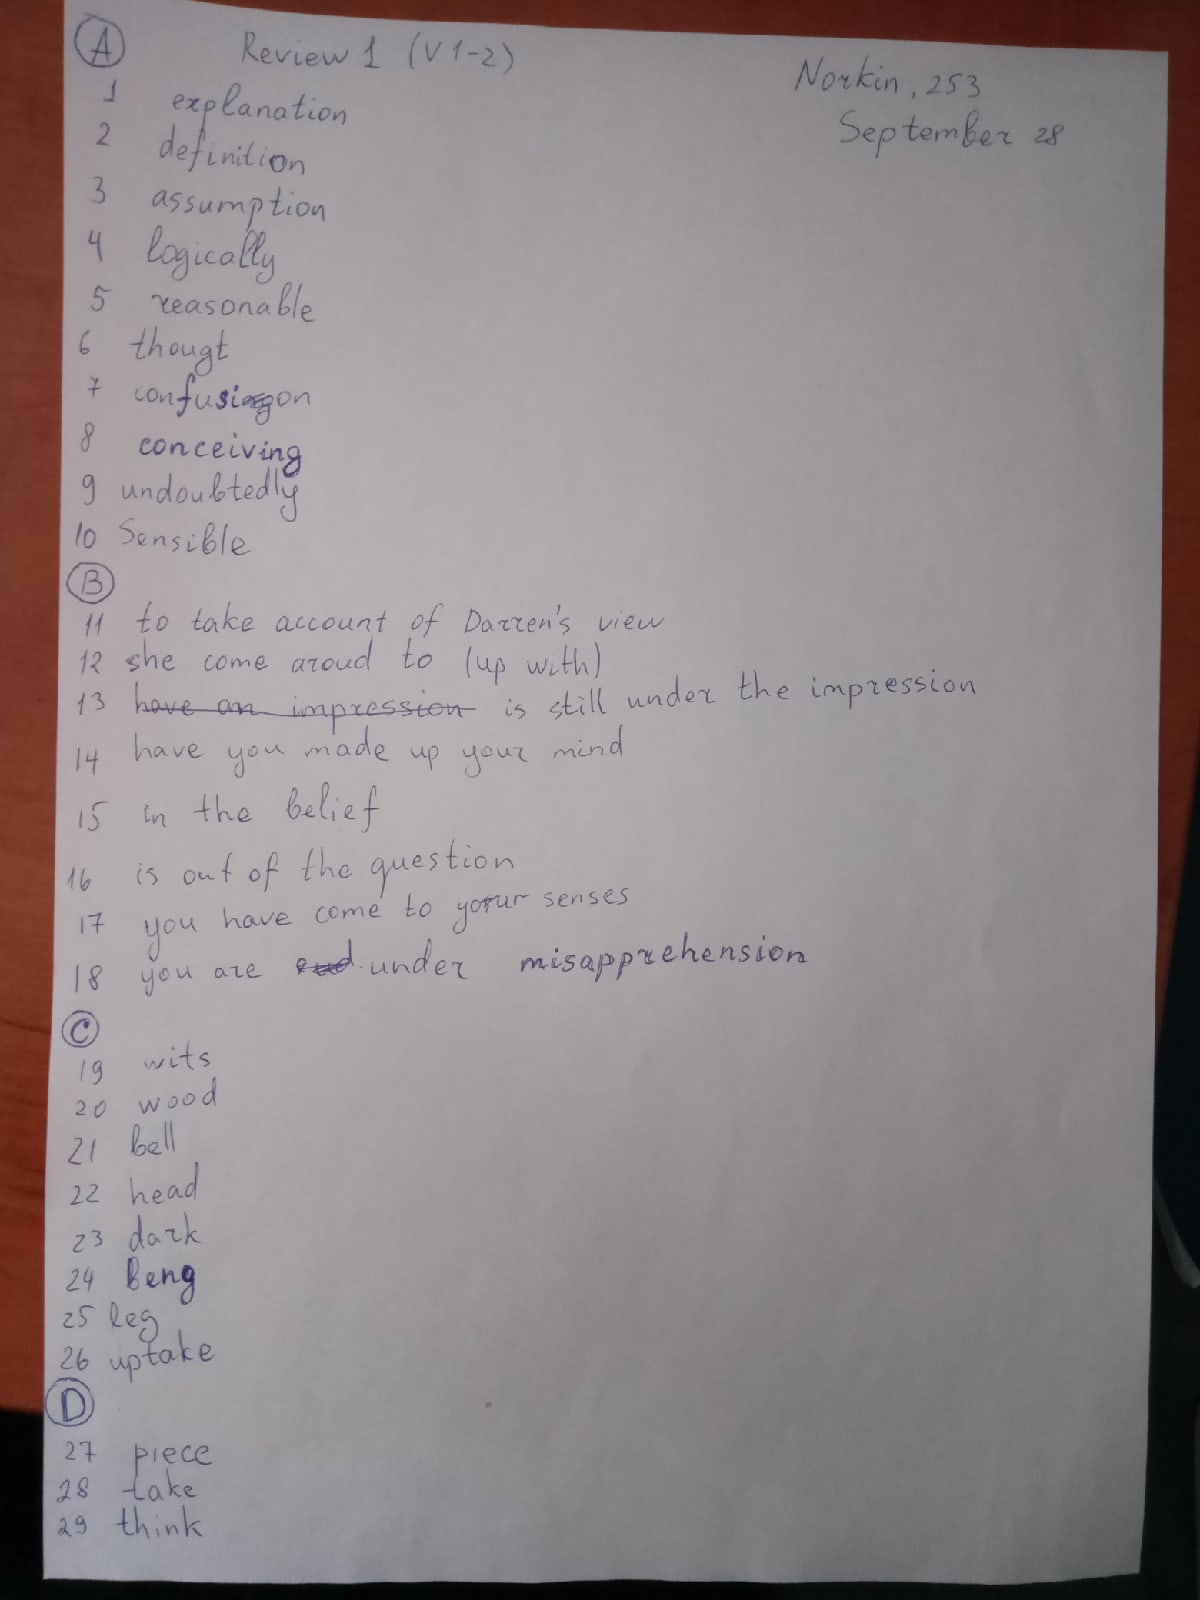 A Review 1 (V 1-2)
Norkin, 253
September 28
1 explanation
2 definition
3 assumption
4 logically
5 reasonable
6 thougt
7 confusion
8 conceiving
9 undoubtedly
10 Sensible
B
11 to take account of Darren's view
12 she come aroud to (up with)
13 have an impression is still under the impression
14 have you made up your mind
15 in the belief
16 is out of the question
17 you have come to your senses
18 you are under misapprehension
C
19 wits
20 wood
21 bell
22 head
23 dark
24 Beng
25 leg
26 uptake
D
27 piece
28 take
29 think